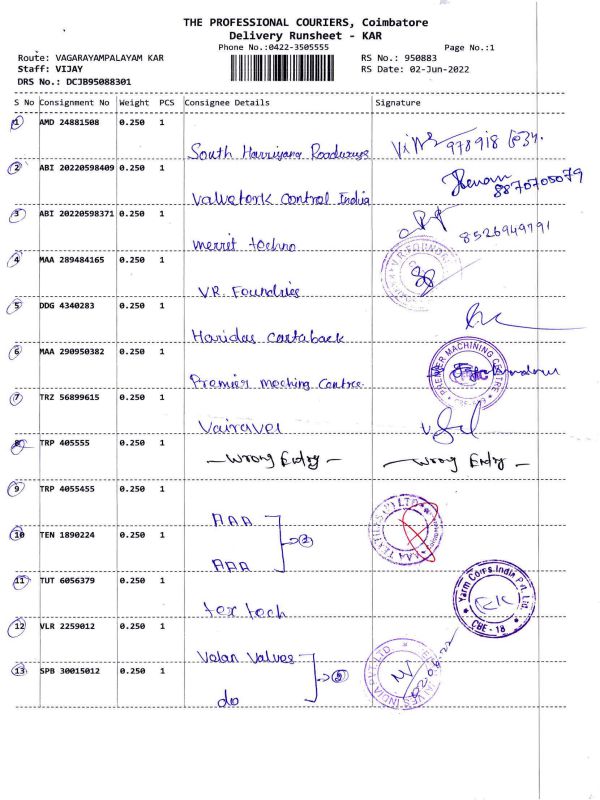 THE PROFESSIONAL COURIERS, Coimbatore
Delivery Runsheet - KAR
Phone No.:0422-3505555
Page No.:1
Route: VAGARAYAMPALAYAM KAR
RS No.: 950883
Staff: VIJAY
RS Date: 02-Jun-2022
DRS No.: DCJB95088301
S No Consignment No Weight PCS Consignee Details Signature
1 AMD 24881508 0.250 1 South Harriyana Roadways
2 ABI 20220598409 0.250 1 Valvetork Control India 8870705079
3 ABI 20220598371 0.250 1 merrit techno 8526949791
4 MAA 289484165 0.250 1 V.R. Foundries
V.R.FOUNDRIES
5 DDG 4340283 0.250 1 Haridas cartaback
6 MAA 290950382 0.250 1 Premier meching Centre
PREMIER MACHINING CENTRE
7 TRZ 56899615 0.250 1 Vairavel
8 TRP 405555 0.250 1 - Wrong Entry - - Wrong Entry -
9 TRP 4055455 0.250 1 AAA
10 TEN 1890224 0.250 1 AAA 2
AAA TEXTILES (P) LTD
11 TUT 6056379 0.250 1 tex tech
Yarm Corps India Pvt. Ltd.
CBE - 18
12 VLR 2259012 0.250 1 Velan Valves
13 SPB 30015012 0.250 1 do
VALVES INDIA PVT.LTD
02.06.22